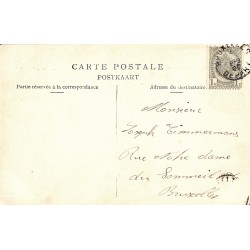 CARTE POSTALE
POSTKAART
Partie réservée à la correspondance.
Adresse du destinataire.
Monsieur
Joseph Timmermans
Rue Notre dame
du Sommeil
Bruxelles